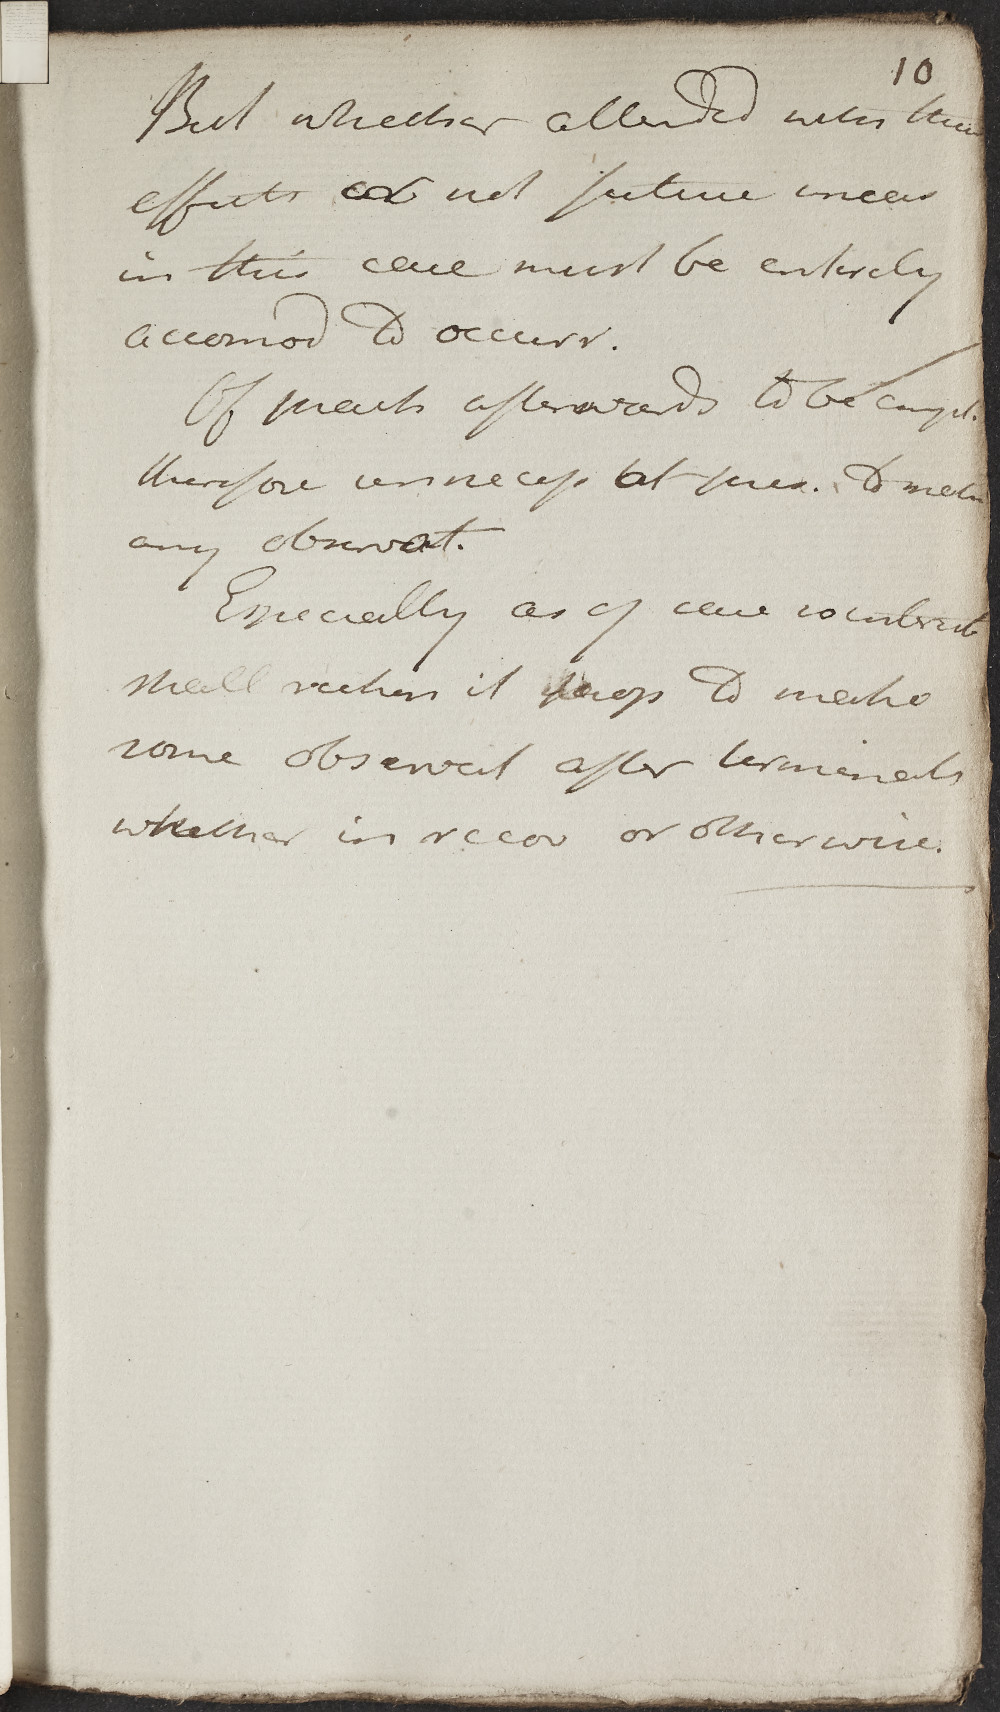 10
But whether attended with these
effects or not future meas
in this case must be entirely
accomod to occurr.
Of practs afterwards to be empl.
therefore unnecess at pres. to make
any observat.
Especially as of case so interest
shall rather it propos to make
some observat after terminats
whether in recov or otherwise.